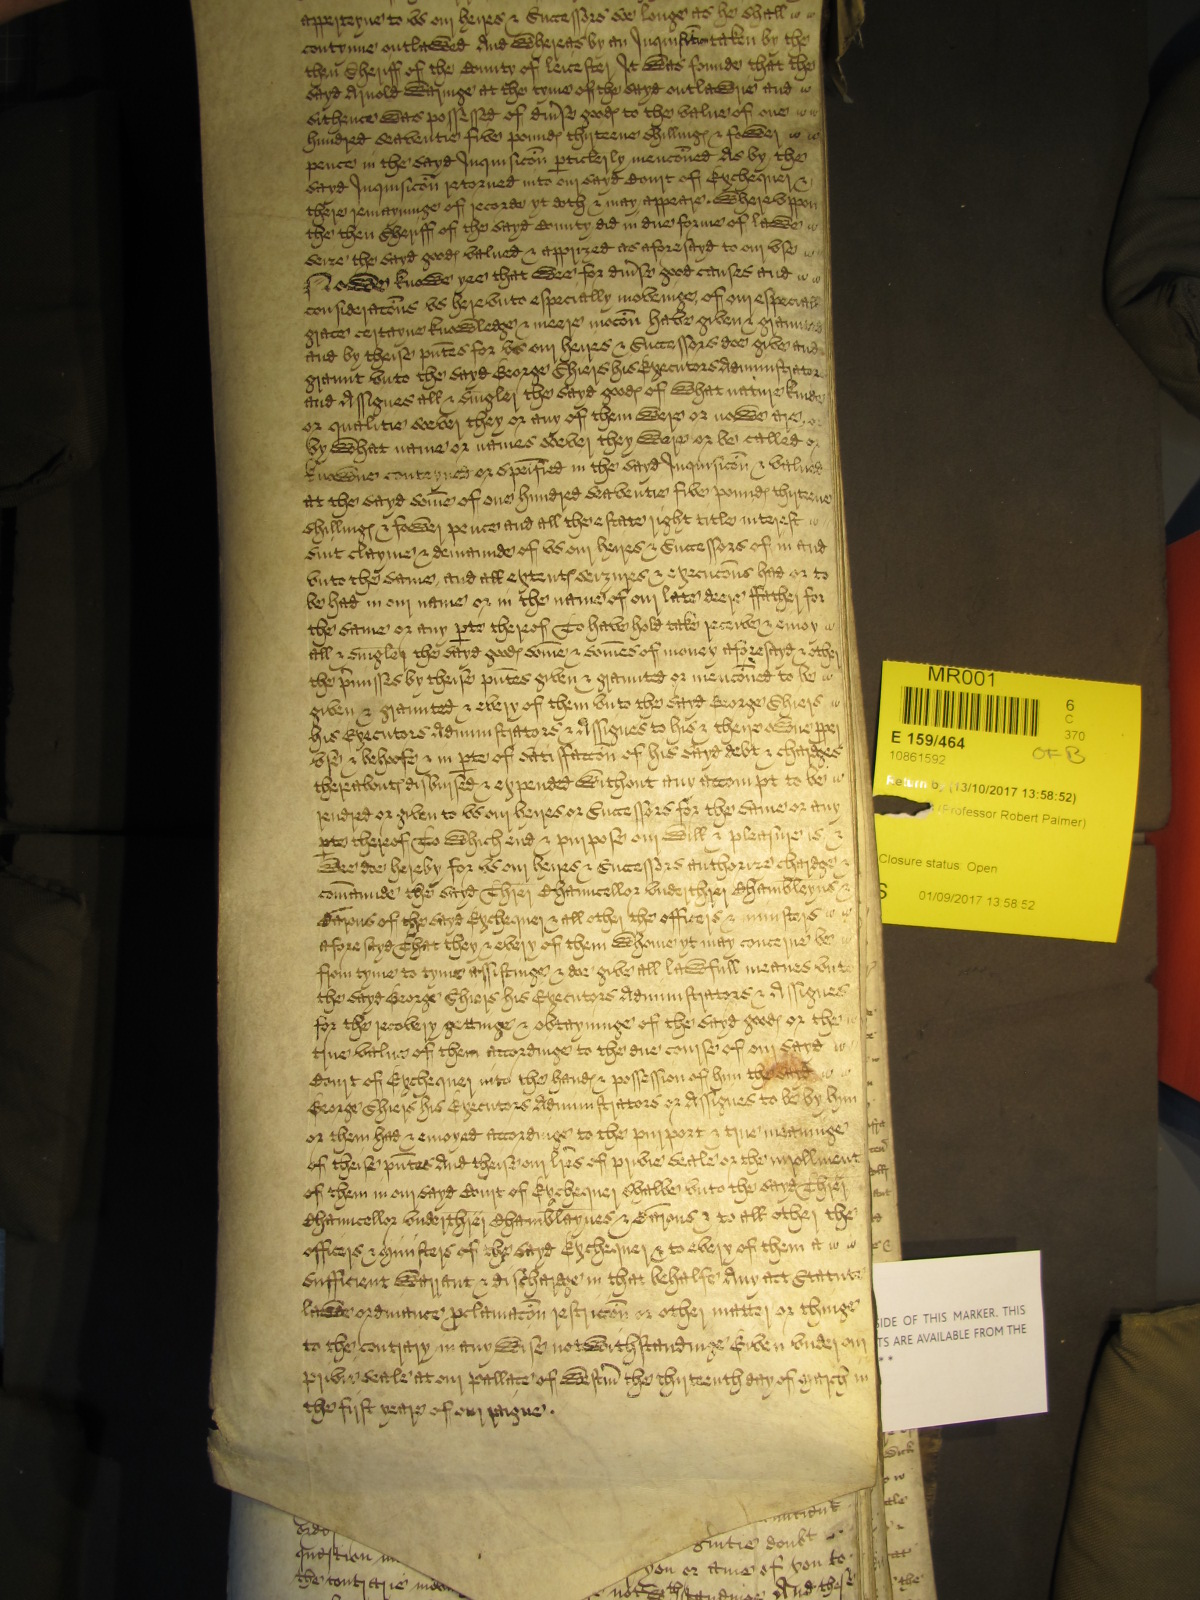 apperteyne to us our heyres & Successors soe longe as he shall
contynue outlawed And Whereas by an Inquisicōn taken by the
then Sheriff of the County of leicester It was founde that the
sayd Arnold Waringe at the tyme of the sayd outlawrie and
sithence was possessed of div'se good to the value of one
hundred seaventie five pound thirteene shilling & fower
pence in the sayd Inquisicōn pticlerly mencōned As by the
sayd Inquisicōn retorned into our sayd Court of Exchequer &
there remayninge of recorde yt doth & may appeare. Whereuppon
the then Sheriff of the sayd County did in due forme of lawe
seize the sayd good valued & apprized as aforesayd to our use
Nowe knowe yee that Wee for div'se good causes and
consideracōns us hereunto especially movinge, of our especiall
grace certayne knowledge & meere mocōn have given & graunted
and by theise pntes for us our heyres & Successors doe give and
graunt unto the sayd George Shiers his Executors Administrators
and Assignes all & singler the sayd good of what nature kinde
or qualitie soever they or any of them were or nowe are, or
by what name or names soever they were or be called or
knowne conteyned or specified in the sayd Inquisicōn & valued
at the sayd some of one hundred seaventie five pound thirteene
shilling & fower pence and all the estate right title interest
suit clayme & demaunde of us our heyres & Successors of in and
unto the same, and all extent seizures & execucōns had or to
be had in our name or in the name of our late deere ffather for
the same or any pte thereof To have hold take receive & enioy
all & singler the sayd good some & somes of money aforesayd & other
the pmisses by theise pntes given & graunted or mencōned to be
given & graunted & every of them unto the sayd George Shiers
his Executors Administrators & Assignes to his & their owne pper
use & behoofe & in pte of satisfaccōn of his sayd debt & chardges
thereabout disbursed & expended Without any accompt to be
rendred or given to us our heyres or Successors for the same or any
pte thereof To Which end & purpose our Will & pleasure is &
Wee doe hereby for us our heyres & Successors authorize chardge &
comaunde the sayd Threr Chauncellor underthrer Chamb'leyns &
Barons of the sayd Exchequer & all other the officers & ministers
aforesayd That they & every of them Whome yt may concerne be
from tyme to tyme assistinge & doe give all lawfull meanes unto
the sayd George Shiers his Executors Administrators & Assignes
for the recovery gettinge & obtayninge of the sayd good or the
true value of them accordinge to the due course of our sayd
Court of Exchequer into the hand & possession of him the sayd
George Shiers his Executors Administrators or Assignes to be by him
or them had & enioyed accordinge to the purport & true meaninge
of theise pntes And theise our lres of privie seale or the inrollment
of them in our sayd Court of Exchequer shalbe unto the sayd Threr
Chauncellor underthrer Chamb'laynes & Barons & to all other the
officers & ministers of the sayd Exchequer & to every of them a
sufficient Warrant & dischardge in that behalfe Any act Statute
lawe ordinance pclamacōn restriccōn or other matter or thinge
to the contrary in any Wise notWithstandinge Given under our
privie seale at our pallace of Westm' the thirteenth day of march in
the first yeare of our raigne .
question
yon or anie of you to
the contrarie
And these
MR001
6
C
370
E 159/464
OF B
10861592
Return by (13/10/2017 13:58:52)
(Professor Robert Palmer)
Closure status: Open
S 01/09/2017 13:58:52
SIDE OF THIS MARKER. THIS
TS ARE AVAILABLE FROM THE
**